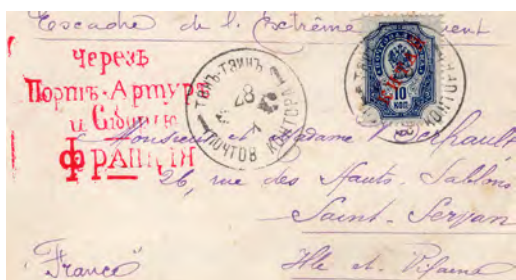 Escadre de l'Extrême
черезъ
Портъ-Артуръ
и Сибирь
ФРАНЦІЯ
ПОЧТОВ КОНТОРА
10
КОП
Monsieur et Madame
26, rue des Hauts-Sablons
Saint-Servan
Ille et Vilaine
France